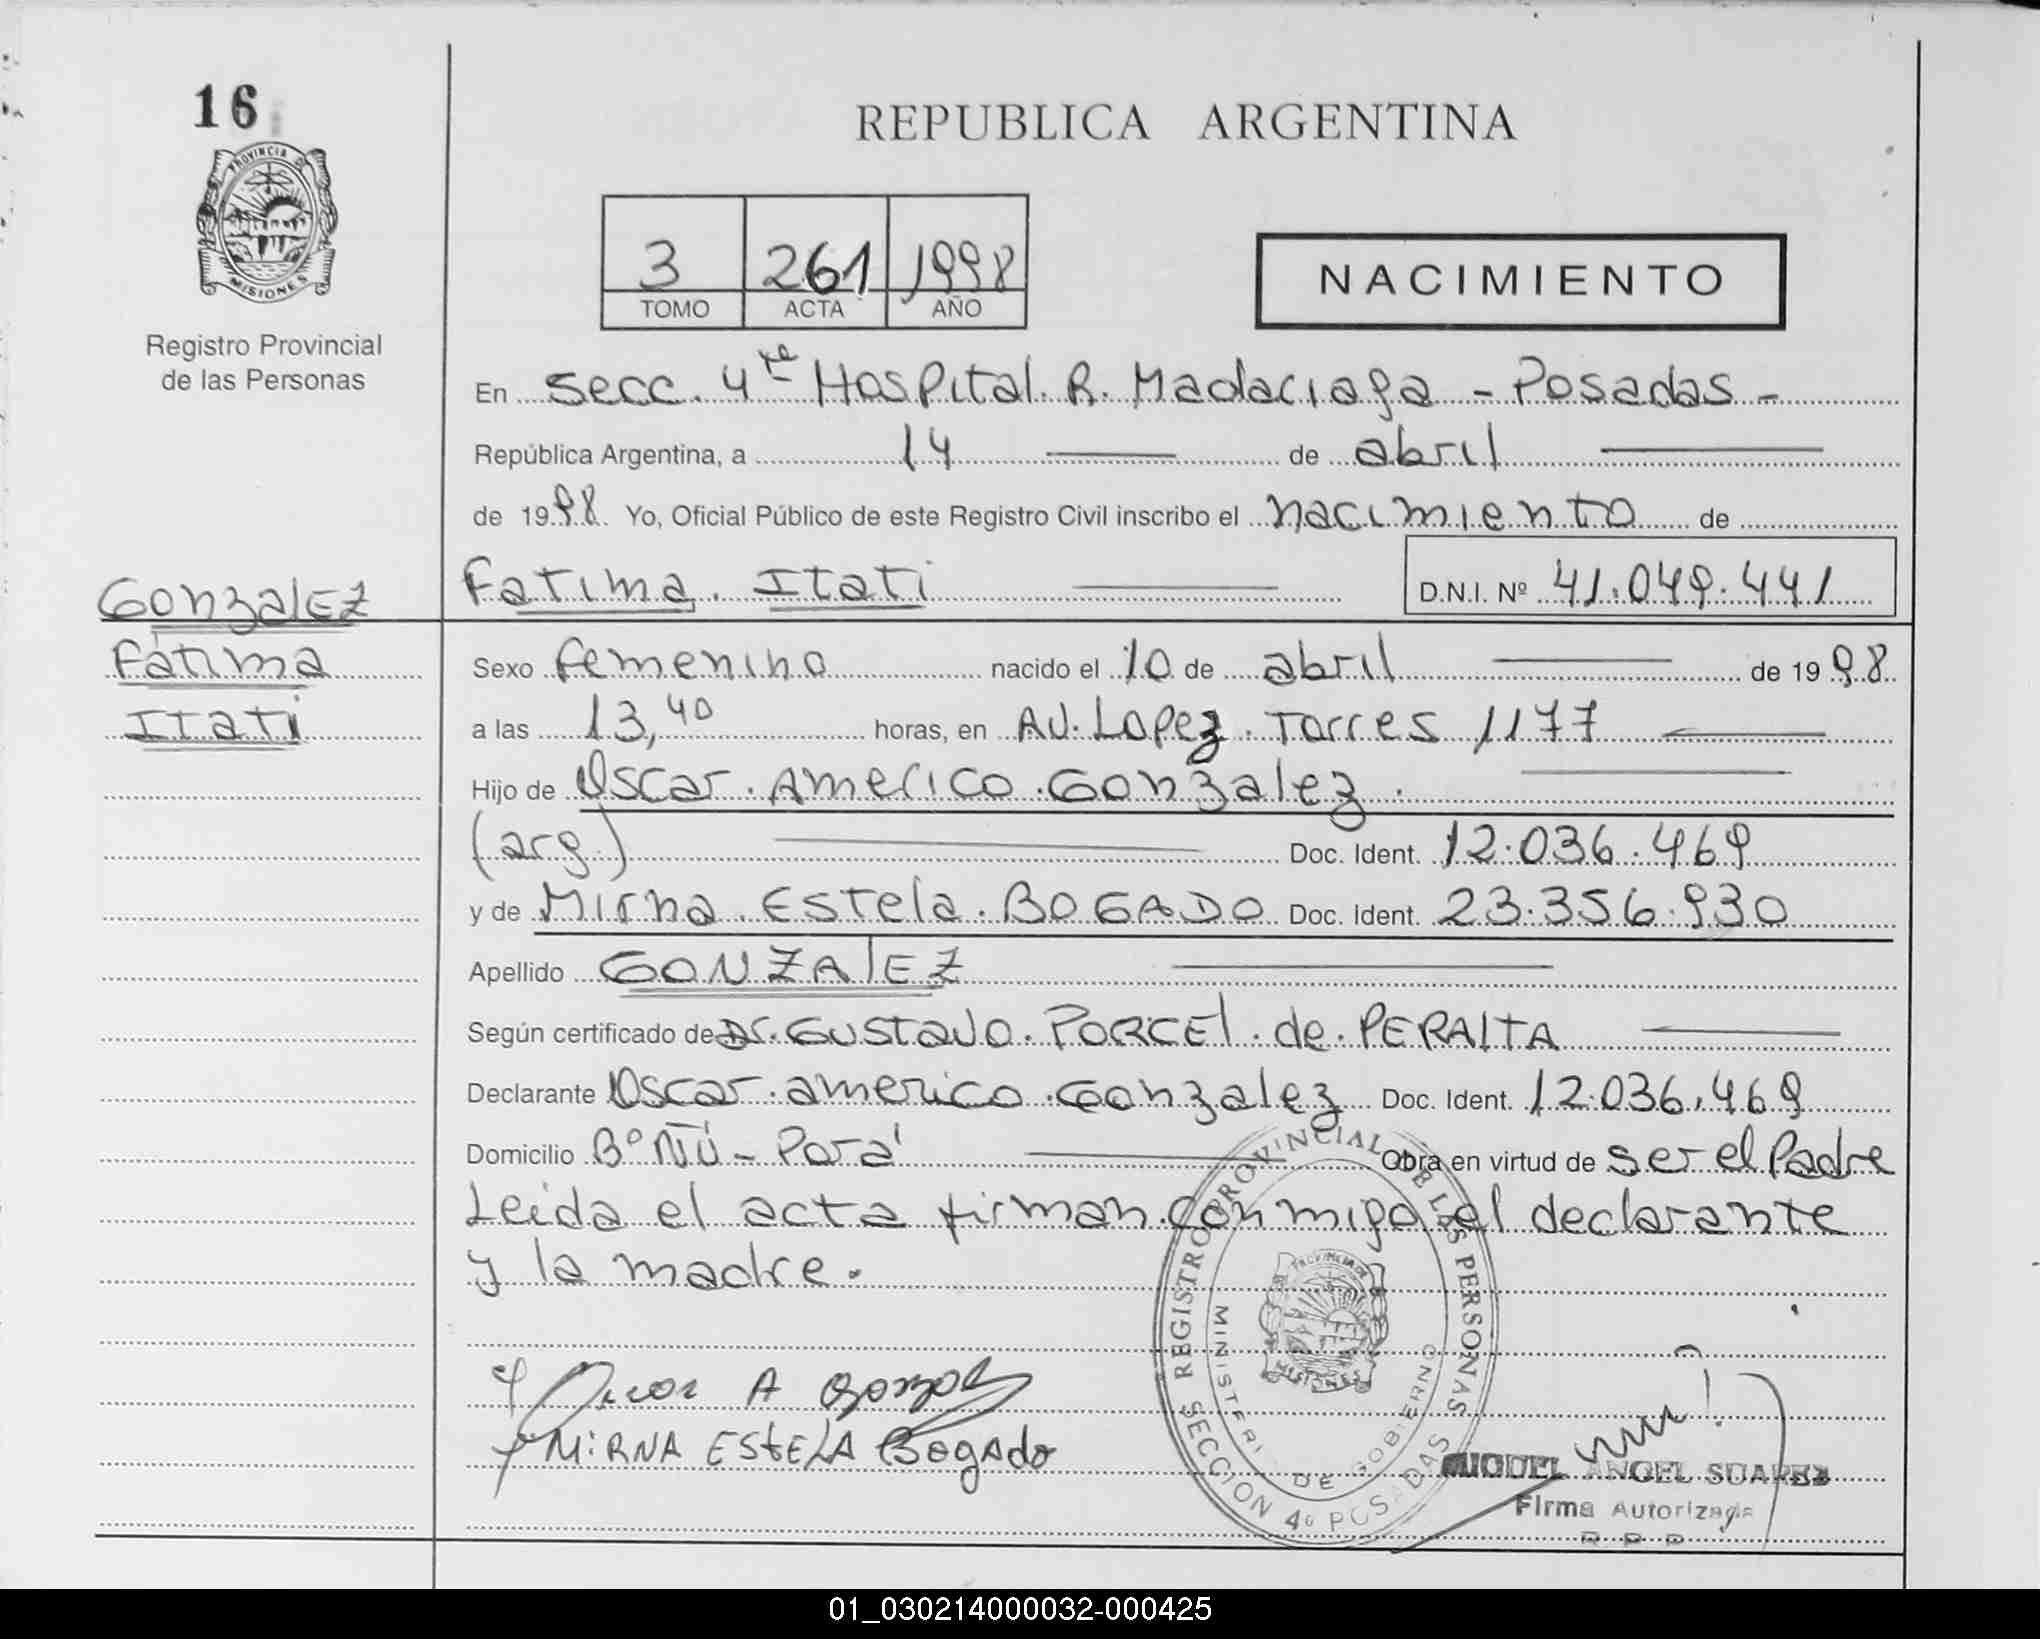 16
PROVINCIA DE
MISIONES
Registro Provincial
de las Personas
REPUBLICA ARGENTINA
3 261 1998
TOMO ACTA AÑO
NACIMIENTO
En secc. 4ta Hospital R. Madaciaga - Posadas -
República Argentina, a 14 de abril
de 1998 Yo, Oficial Público de este Registro Civil inscribo el nacimiento de
Fatima Itati D.N.I. Nº 41.049.441
Gonzalez
Fátima
Itati
Sexo femenino nacido el 10 de abril de 1998
a las 13,40 horas, en AV. Lopez Torres 1177
Hijo de Oscar Americo Gonzalez
(arg) Doc. Ident. 12.036.469
y de Mirna Estela BOGADO Doc. Ident. 23.356.930
Apellido GONZALEZ
Según certificado de Dr. Gustavo PORCEL de PERALTA
Declarante Oscar americo Gonzalez Doc. Ident. 12.036.469
Domicilio Bº ÑU - Pora' Obra en virtud de ser el Padre
Leida el acta firman conmigo el declarante
y la madre.
REGISTRO PROVINCIAL DE LAS PERSONAS
MINISTERI DE GOBIERNO
SECCION 4º POSADAS
Oscar A Gonzalez
MiRNA EStELA BogAdo
MIGUEL ANGEL SUAREZ
Firma Autorizada
R P P
01_030214000032-000425